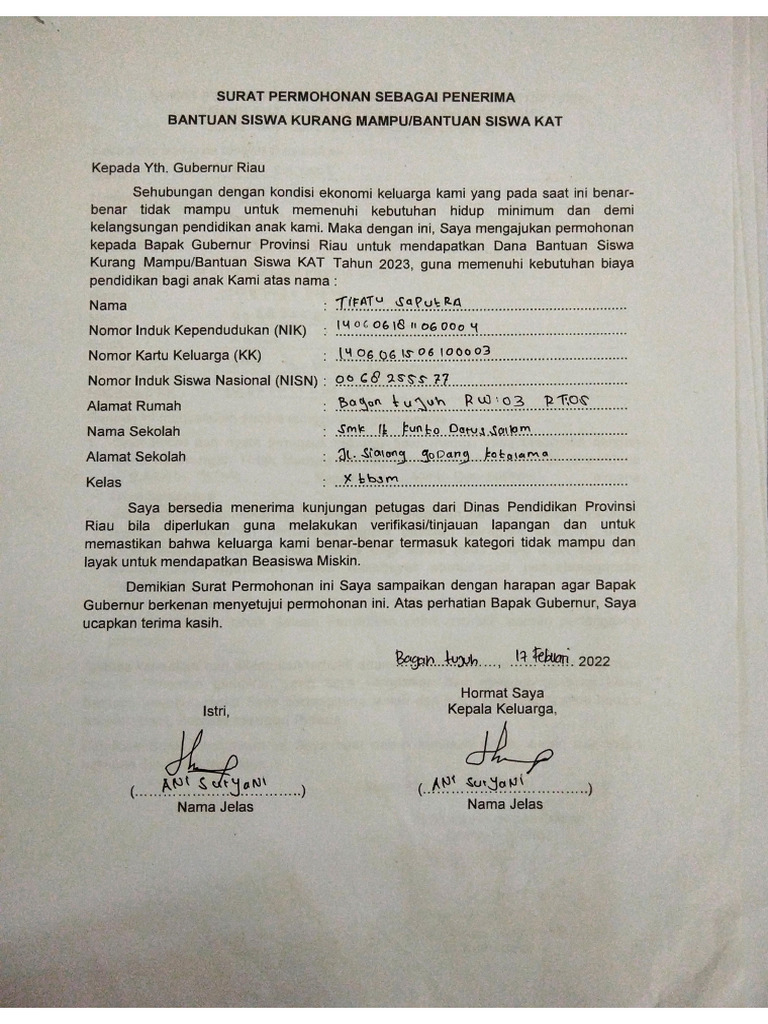 SURAT PERMOHONAN SEBAGAI PENERIMA
BANTUAN SISWA KURANG MAMPU/BANTUAN SISWA KAT
Kepada Yth. Gubernur Riau
Sehubungan dengan kondisi ekonomi keluarga kami yang pada saat ini benar-
benar tidak mampu untuk memenuhi kebutuhan hidup minimum dan demi
kelangsungan pendidikan anak kami. Maka dengan ini, Saya mengajukan permohonan
kepada Bapak Gubernur Provinsi Riau untuk mendapatkan Dana Bantuan Siswa
Kurang Mampu/Bantuan Siswa KAT Tahun 2023, guna memenuhi kebutuhan biaya
pendidikan bagi anak Kami atas nama :
Nama : TIFATU SaPUtRA
Nomor Induk Kependudukan (NIK) : 1406061811060004
Nomor Kartu Keluarga (KK) : 1406061506100003
Nomor Induk Siswa Nasional (NISN) : 0068255577
Alamat Rumah : Bagan tujuh RW:03 RT:05
Nama Sekolah : Smk It kunto Darussalam
Alamat Sekolah : Jl. Sialang godang kotalama
Kelas : X tbsm
Saya bersedia menerima kunjungan petugas dari Dinas Pendidikan Provinsi
Riau bila diperlukan guna melakukan verifikasi/tinjauan lapangan dan untuk
memastikan bahwa keluarga kami benar-benar termasuk kategori tidak mampu dan
layak untuk mendapatkan Beasiswa Miskin.
Demikian Surat Permohonan ini Saya sampaikan dengan harapan agar Bapak
Gubernur berkenan menyetujui permohonan ini. Atas perhatian Bapak Gubernur, Saya
ucapkan terima kasih.
Bagan tujuh, 17 Febuari 2022
Hormat Saya
Istri, Kepala Keluarga,
(ANI SurYaNI) (ANI SurYaNI)
Nama Jelas Nama Jelas